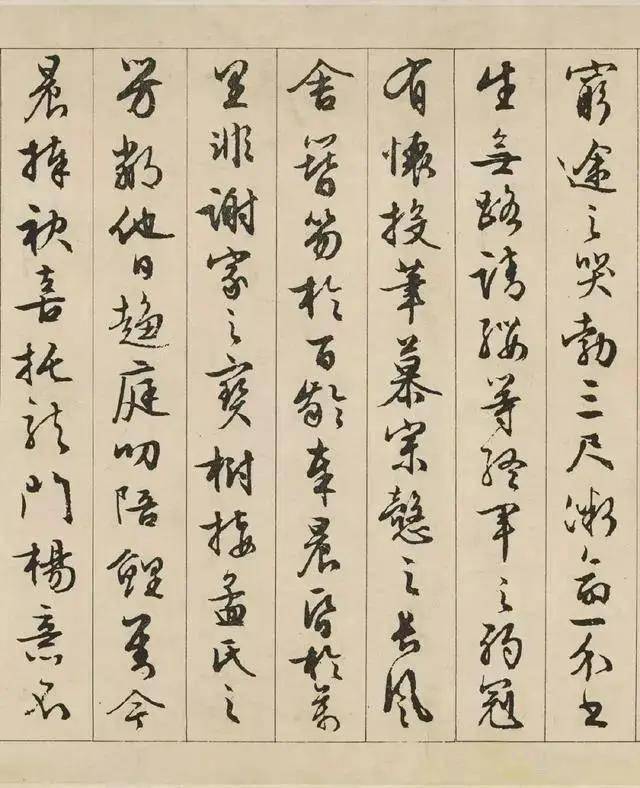 窮途之哭勃三尺微命一介書
生無路請纓等終軍之弱冠
有懷投筆慕宗慤之長風
舍簪笏於百齡奉晨昏於萬
里非謝家之寶樹接孟氏之
芳鄰他日趨庭叨陪鯉對今
晨捧袂喜托龍門楊意不